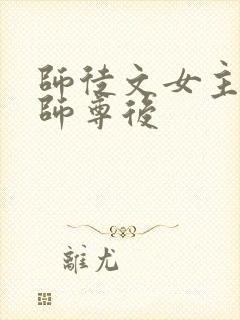 師徒文女主
師尊後
離尤